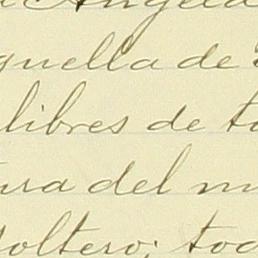 Angela
quella de
libres de to
ura del m
soltero; tod